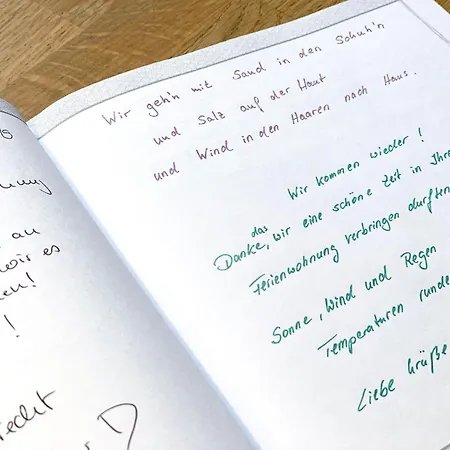 an
wir es
!
!
Wir geh'n mit Sand in den Schuh'n
und Salz auf der Haut
und Wind in den Haaren nach Haus.
Wir kommen wieder!
das
Danke, wir eine schöne Zeit in Ihre
Ferienwohnung verbringen durften
Sonne, Wind und Regen
Temperaturen runde
Liebe Grüße